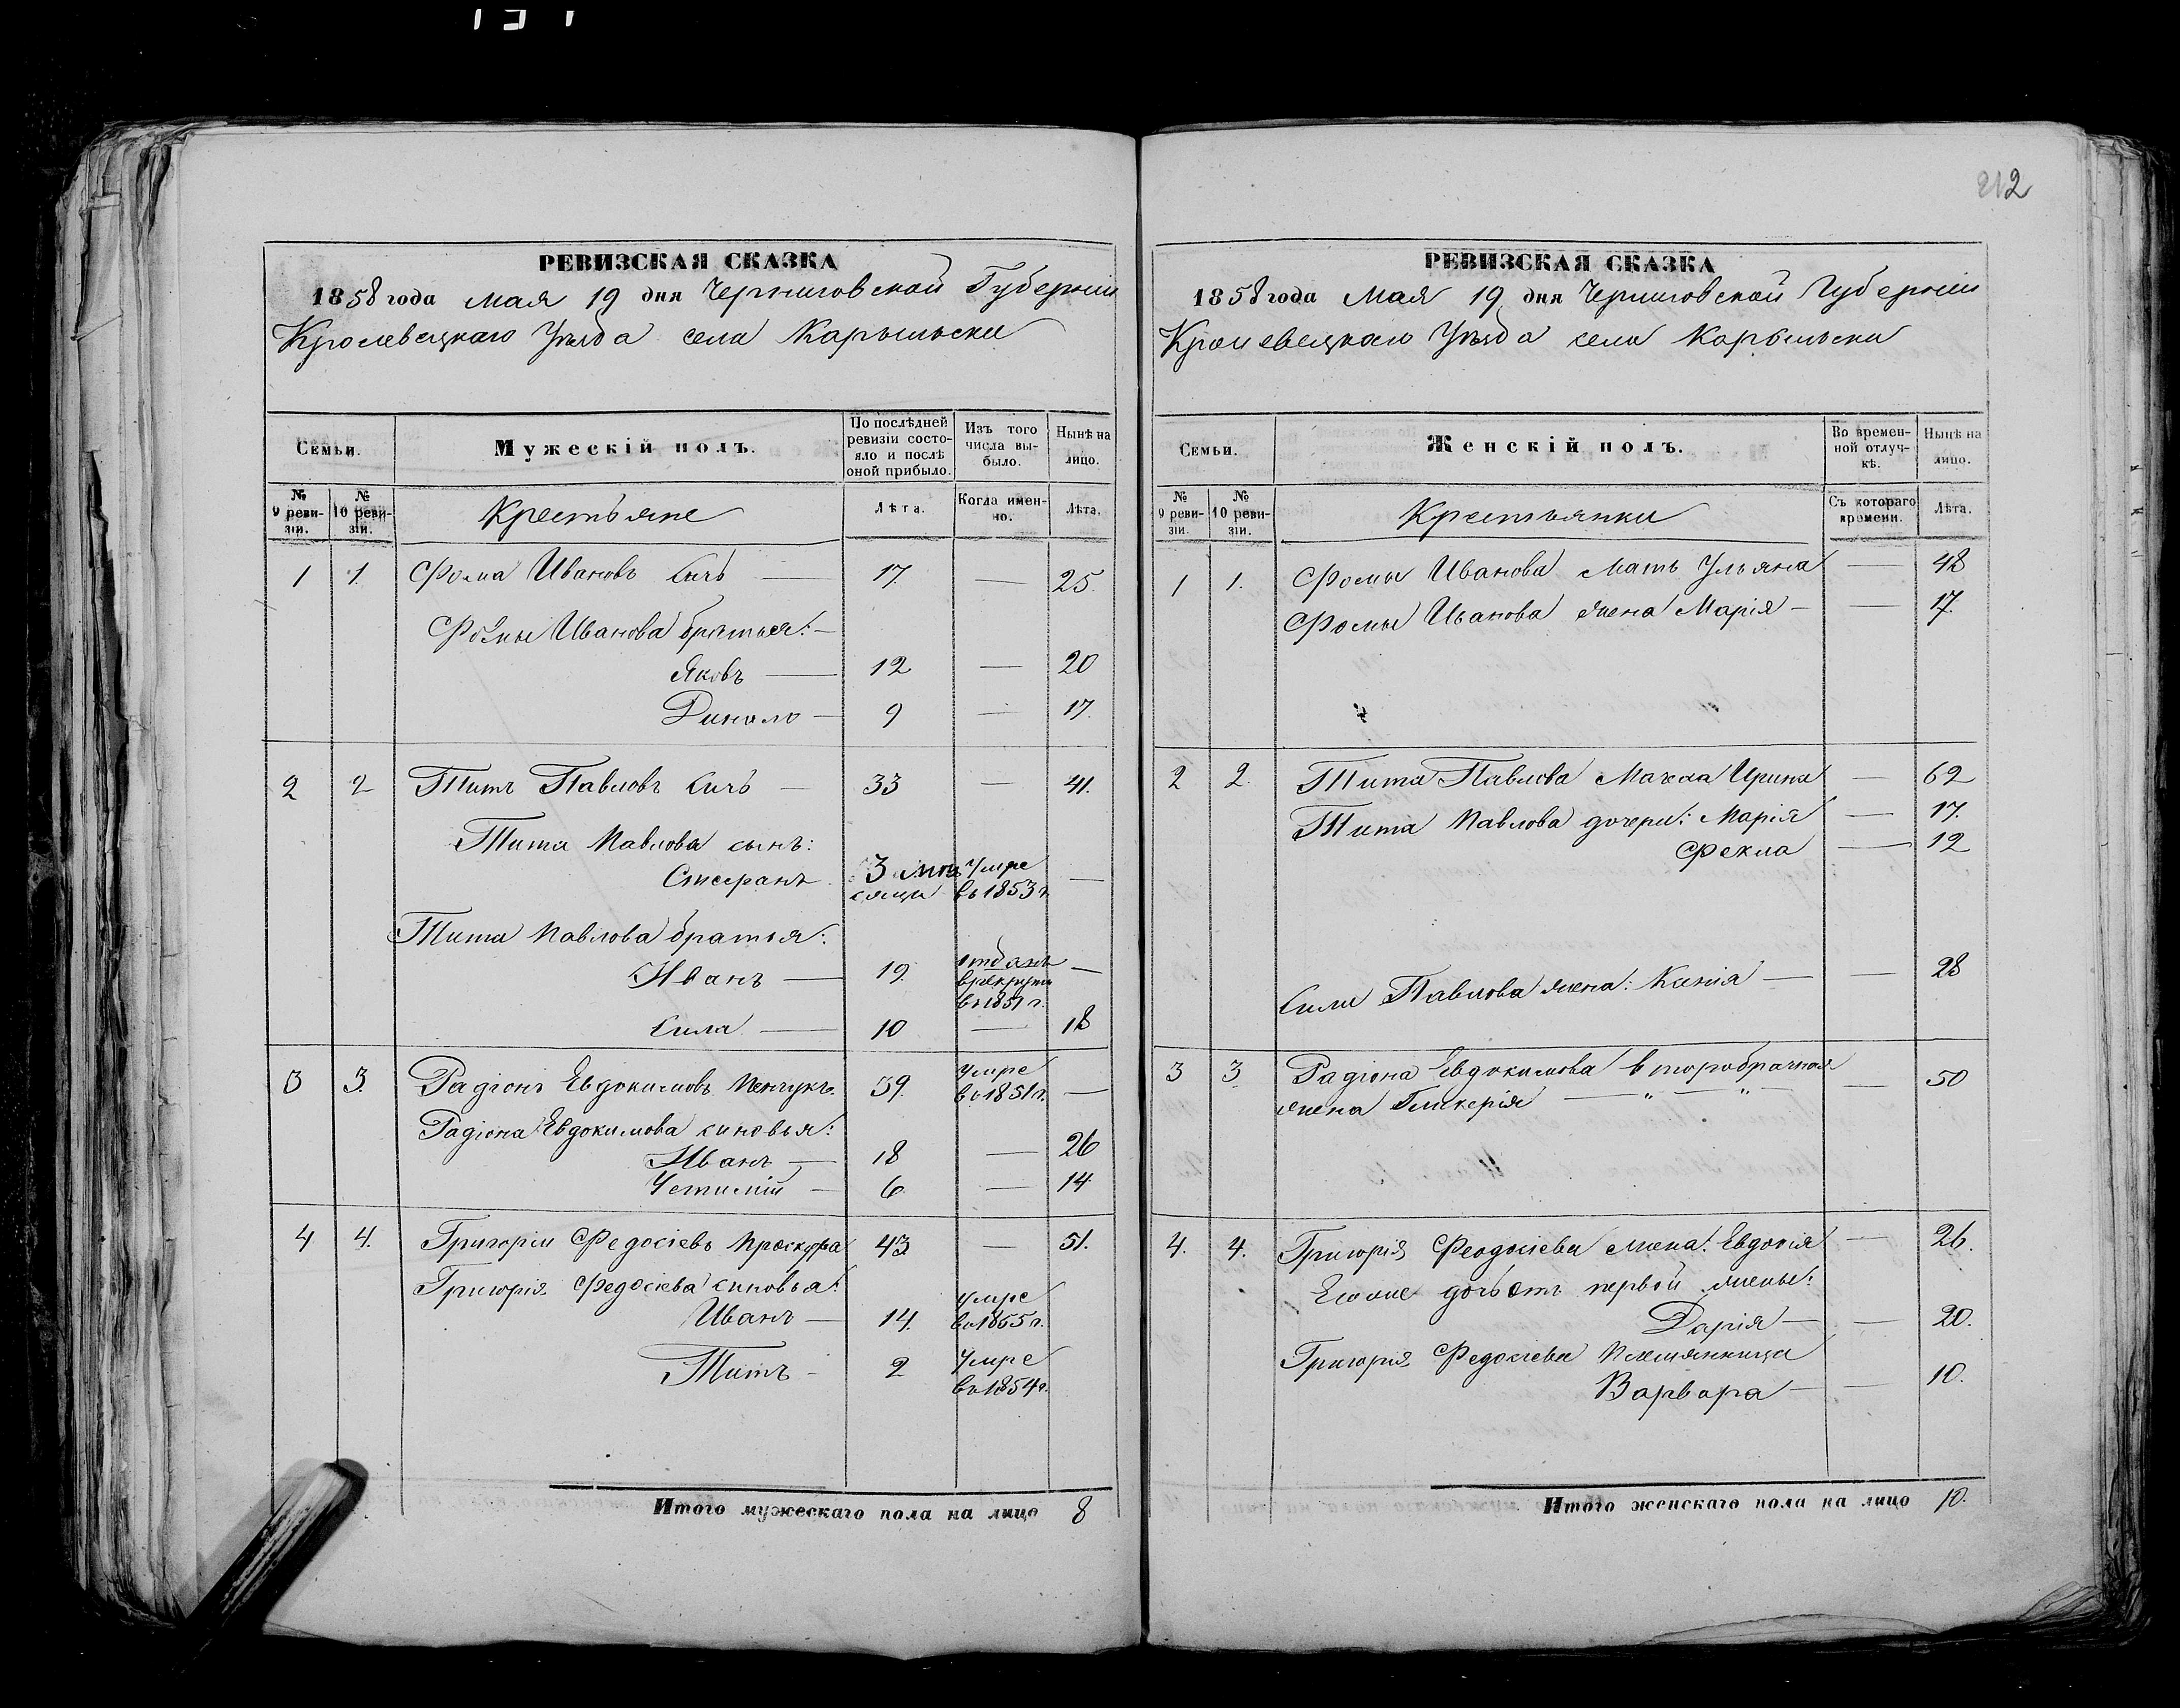 212
РЕВИЗСКАЯ СКАЗКА
1858 года Мая 19 дня Черниговской Губерніи
Кролевецкаго Уѣзда села Карыльски
Семьи.
Мужескій полъ.
По послѣдней ревизіи состояло и послѣ оной прибыло.
Изъ того числа выбыло.
Нынѣ на лицо.
№ 9 ревизіи.
№ 10 ревизіи.
Крестьяне
Лѣта.
Когда именно.
Лѣта.
1 1. Фома Ивановъ Сичъ — 17 — 25.
Фомы Иванова братья: —
Яковъ — 12 — 20
Данило — 9 — 17.
2 2 Титъ Павловъ Сичъ — 33 — 41.
Тита Павлова сынъ:
Стефанъ 3 мѣсяца Умре въ 1853 г. —
Тита Павлова братья:
Иванъ — 19. отданъ в рекруты въ 1851 г. —
Сила — 10 — 18
3 3. Радіонъ Евдокимовъ 39. умре въ 1851 г. —
Радіона Евдокимова синовья:
Иванъ — 18 — 26
6 — 14
4 4. Григорій Федосіевъ Проскура 43 — 51.
Григорія Федосіева синовья:
Иванъ — 14. умре въ 1855 г.
Титъ — 2 Умре въ 1854 г.
Итого мужескаго пола на лицо 8
РЕВИЗСКАЯ СКАЗКА
1858 года Мая 19 дня Черниговской Губерніи
Кролевецкаго Уѣзда села Карыльски
Семьи.
Женскій полъ.
Во временной отлучкѣ.
Нынѣ на лицо.
№ 9 ревизіи.
№ 10 ревизіи.
Крестьянки
Съ котораго времени.
Лѣта.
1 1. Фомы Иванова мать Ульяна — 48
Фомы Иванова жена Марія — — 17.
2 2. Тита Павлова Мачеха Ирина — 62
Тита Павлова дочери: Марія — 17.
Фекла — 12
Силы Павлова жена: Ксенія — — 28
3 3. Радіона Евдокимова второбрачная
жена Гликерія — " — " — 50
4. 4. Григорія Феодосіева жена: Евдокія — 26.
Егоже дочь отъ первой жены:
Дарія — — 20.
Григорія Федосіева Племянница
Варвара — — 10.
Итого женскаго пола на лицо 10.